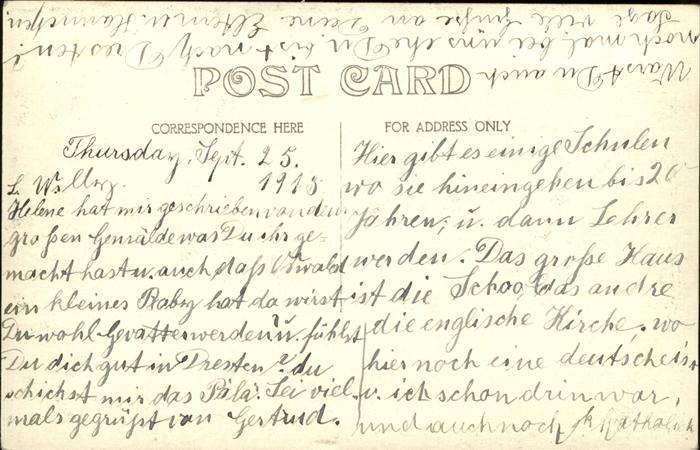 POST CARD
CORRESPONDENCE HERE
Thursday, Sept. 25.
1913
L. W.
Helene hat mir geschrieben von dem
großen Gemälde was Du ihr ge-
macht hast u. auch daß Oswald
ein kleines Baby hat da wirst
Du wohl Gevatter werden? u. fühlst
Du dich gut in Dresten? du
schickst mir das Bild. Sei viel-
mals gegrüßt von Gertrud.
FOR ADDRESS ONLY
Hier gibt es einige Schulen
wo sie hineingehen bis 20
Jahren, u. dann Lehrer
werden. Das große Haus
ist die School, das andre
die englische Kirche, wo
hier noch eine deutsche ist
u. ich schon drin war,
und auch noch Katholisch
Warst Du auch
nochmal bei uns ehe Du bist nach Dresten?
Sage viele Grüße an Deine Eltern u. Hannchen